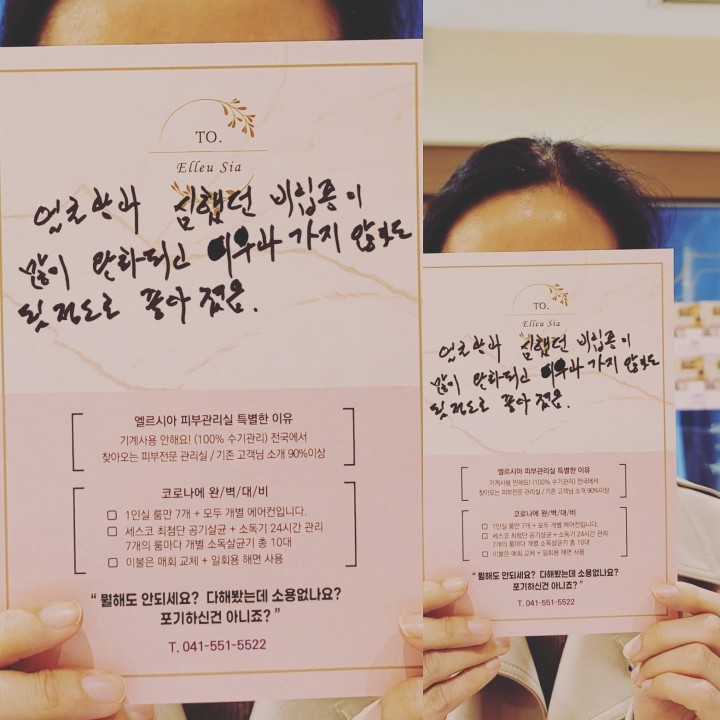 TO.
Elleu Sia
심했던 비립종이
많이 완화되고 피부과 가지 않아도
될 정도로 좋아 졌음.
엘르시아 피부관리실 특별한 이유
기계사용 안해요! (100% 수기관리) 전국에서
찾아오는 피부전문 관리실 / 기존 고객님 소개 90%이상
코로나에 완/벽/대/비
1인실 룸만 7개 + 모두 개별 에어컨입니다.
세스코 최첨단 공기살균 + 소독기 24시간 관리
7개의 룸마다 개별 소독살균기 총 10대
이불은 매회 교체 + 일회용 해면 사용
“ 뭘해도 안되세요? 다해봤는데 소용없나요?
포기하신건 아니죠? ”
T. 041-551-5522
TO.
Elleu Sia
심했던 비립종이
많이 완화되고 피부과 가지 않아도
될 정도로 좋아 졌음.
엘르시아 피부관리실 특별한 이유
기계사용 안해요! (100% 수기관리) 전국에서
찾아오는 피부전문 관리실 / 기존 고객님 소개 90%이상
코로나에 완/벽/대/비
1인실 룸만 7개 + 모두 개별 에어컨입니다.
세스코 최첨단 공기살균 + 소독기 24시간 관리
7개의 룸마다 개별 소독살균기 총 10대
이불은 매회 교체 + 일회용 해면 사용
“ 뭘해도 안되세요? 다해봤는데 소용없나요?
포기하신건 아니죠? ”
T. 041-551-5522